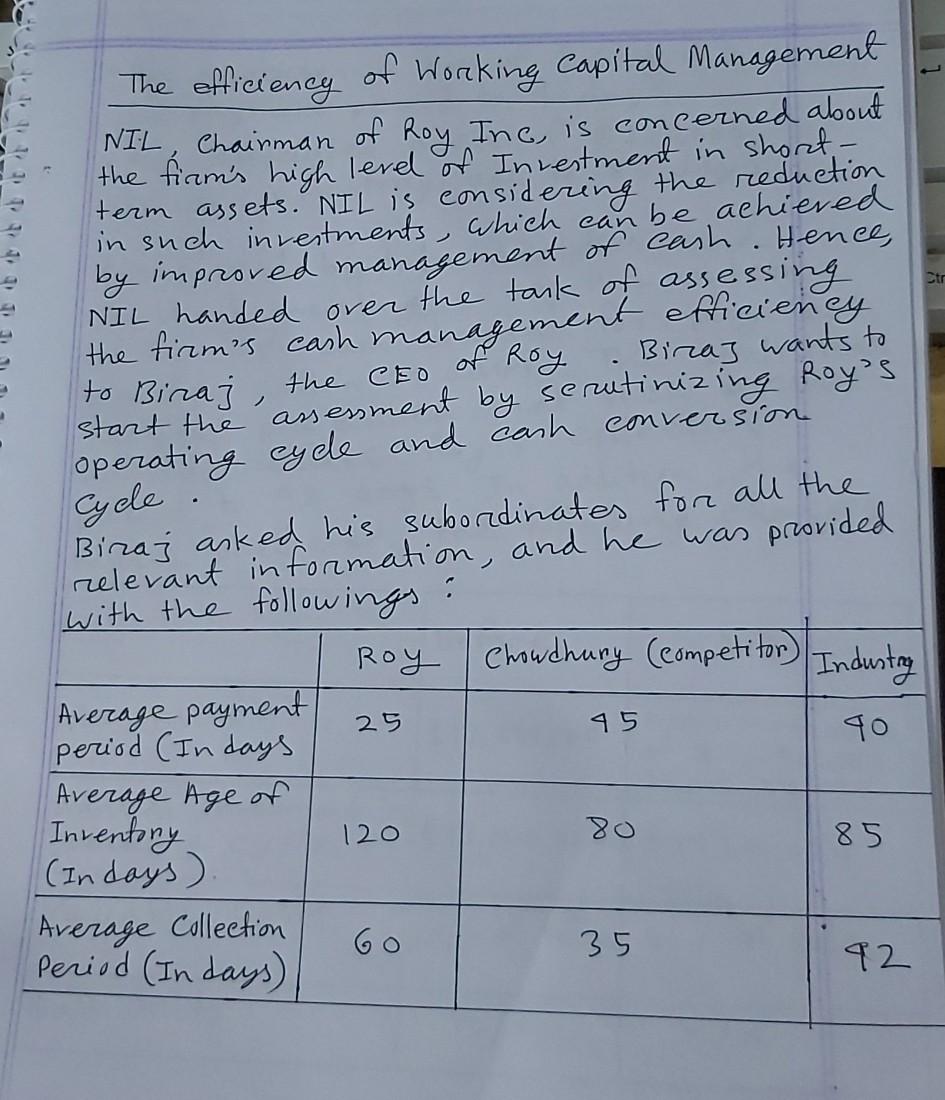 The efficiency of Working Capital Management
NIL, Chairman of Roy Inc, is concerned about
the firm's high level of Investment in short-
term assets. NIL is considering the reduction
in such investments, which can be achieved
by improved management of cash. Hence,
NIL handed over the task of assessing
the firm's cash management efficiency
to Biraj, the CEO of Roy. Biraj wants to
start the assessment by scrutinizing Roy's
operating cycle and cash conversion
Cycle.
Biraj asked his subordinates for all the
relevant information, and he was provided
with the followings:
Roy Chowdhury (competitor) Industry
Average payment
period (In days
25 45 40
Average Age of
Inventory
(In days)
120 80 85
Average Collection
Period (In days)
60 35 42
Ctr